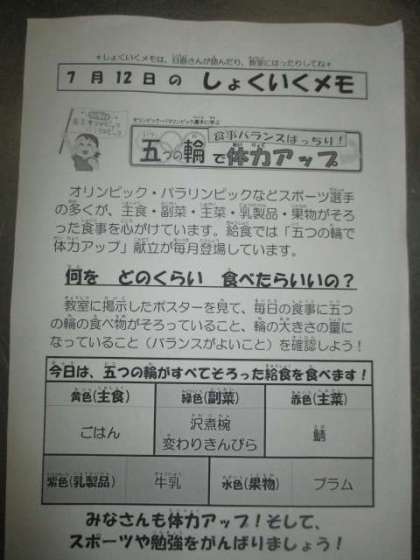 *しょくいくメモは、日直さんが読んだり、教室にはったりしてね*
7月12日の しょくいくメモ
オリンピック・パラリンピック選手に学ぶ
食事バランスばっちり！
五つの輪で体力アップ
オリンピック・パラリンピックなどスポーツ選手
の多くが、主食・副菜・主菜・乳製品・果物がそろ
った食事を心がけています。給食では「五つの輪で
体力アップ」献立が毎月登場しています。
何を どのくらい 食べたらいいの？
教室に掲示したポスターを見て、毎日の食事に五つ
の輪の食べ物がそろっていること、輪の大きさの量に
なっていること（バランスがよいこと）を確認しよう！
今日は、五つの輪がすべてそろった給食を食べます！
黄色(主食) 緑色(副菜) 赤色(主菜)
ごはん 沢煮椀 鯖
変わりきんぴら
紫色(乳製品) 牛乳 水色(果物) プラム
みなさんも体力アップ！そして、
スポーツや勉強をがんばりましょう！